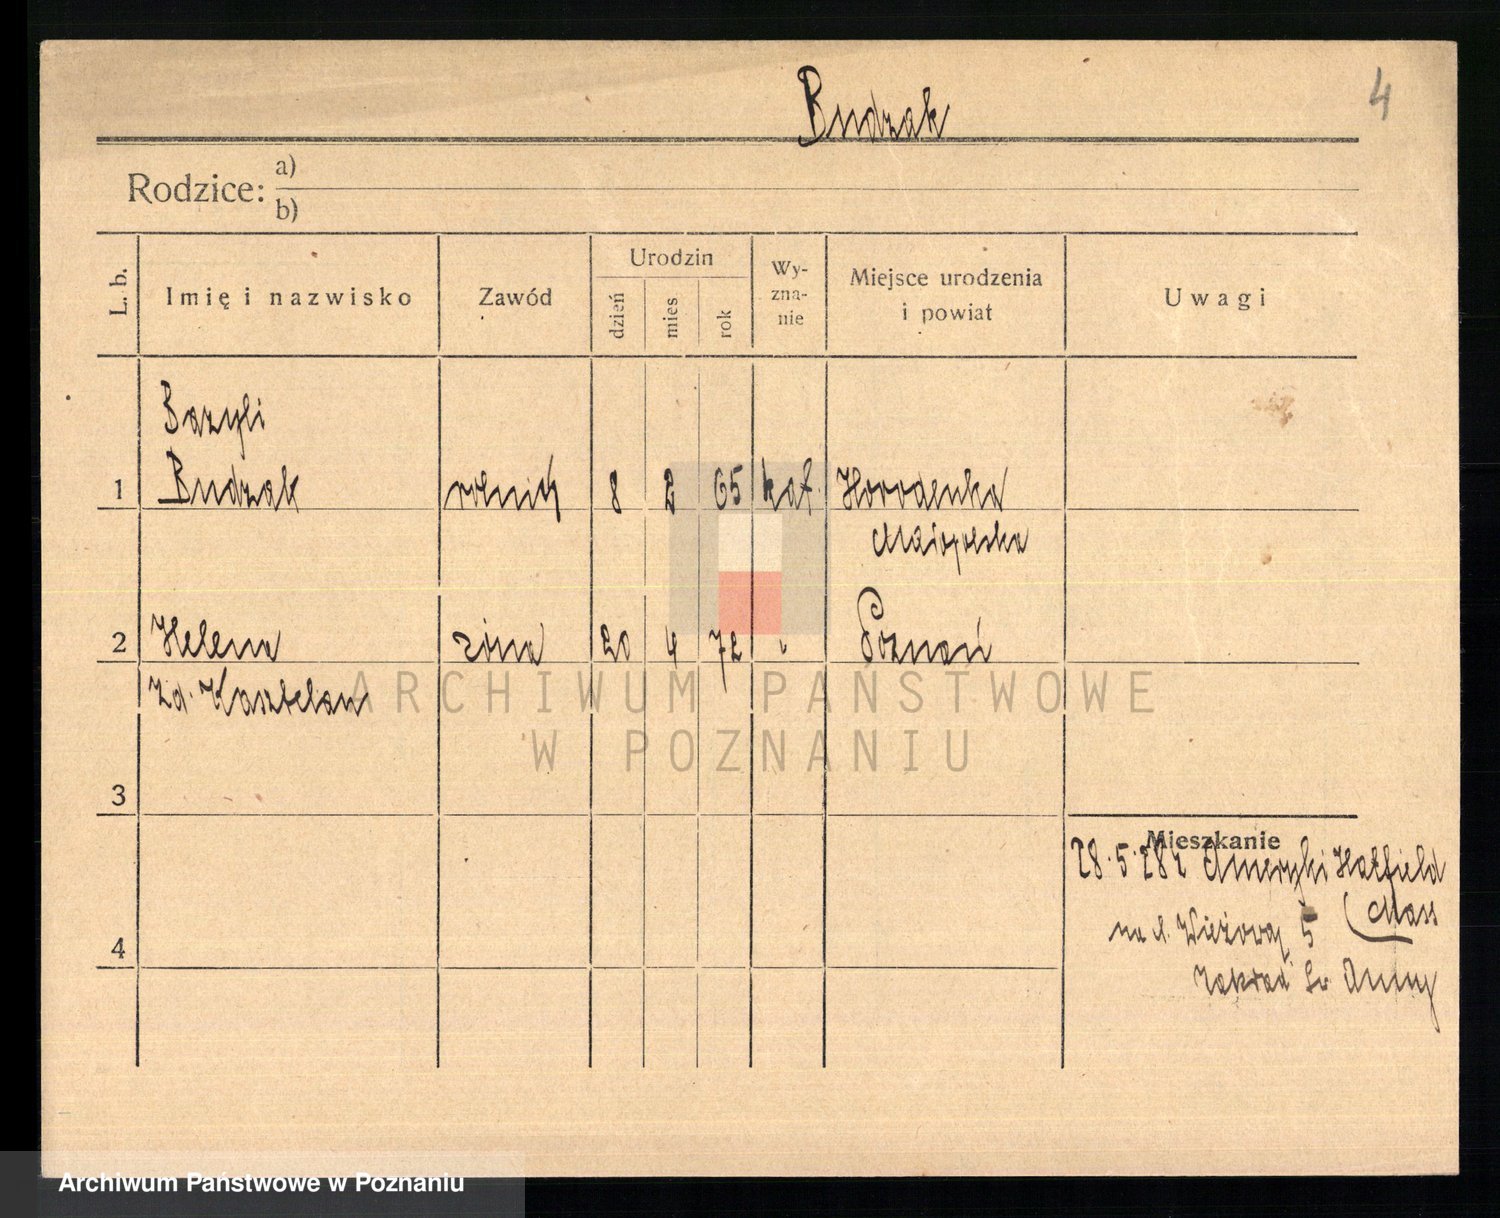 Budzak
4
Rodzice: a)
b)
L. b. Imię i nazwisko Zawód Urodzin dzień mies rok Wy-zna-nie Miejsce urodzenia i powiat Uwagi
Bazyli
1 Budzak rolnik 8 2 65 kat. Horodenka
Małopolska
2 Helena żona 20 4 72 " Poznań
zd. Kasztelan
3
Mieszkanie
28.5.28 z Ameryki Hatfield
Mass
na ul. Wieżowej 5
4
zakład św. Anny
ARCHIWUM PAŃSTWOWE
W POZNANIU
Archiwum Państwowe w Poznaniu